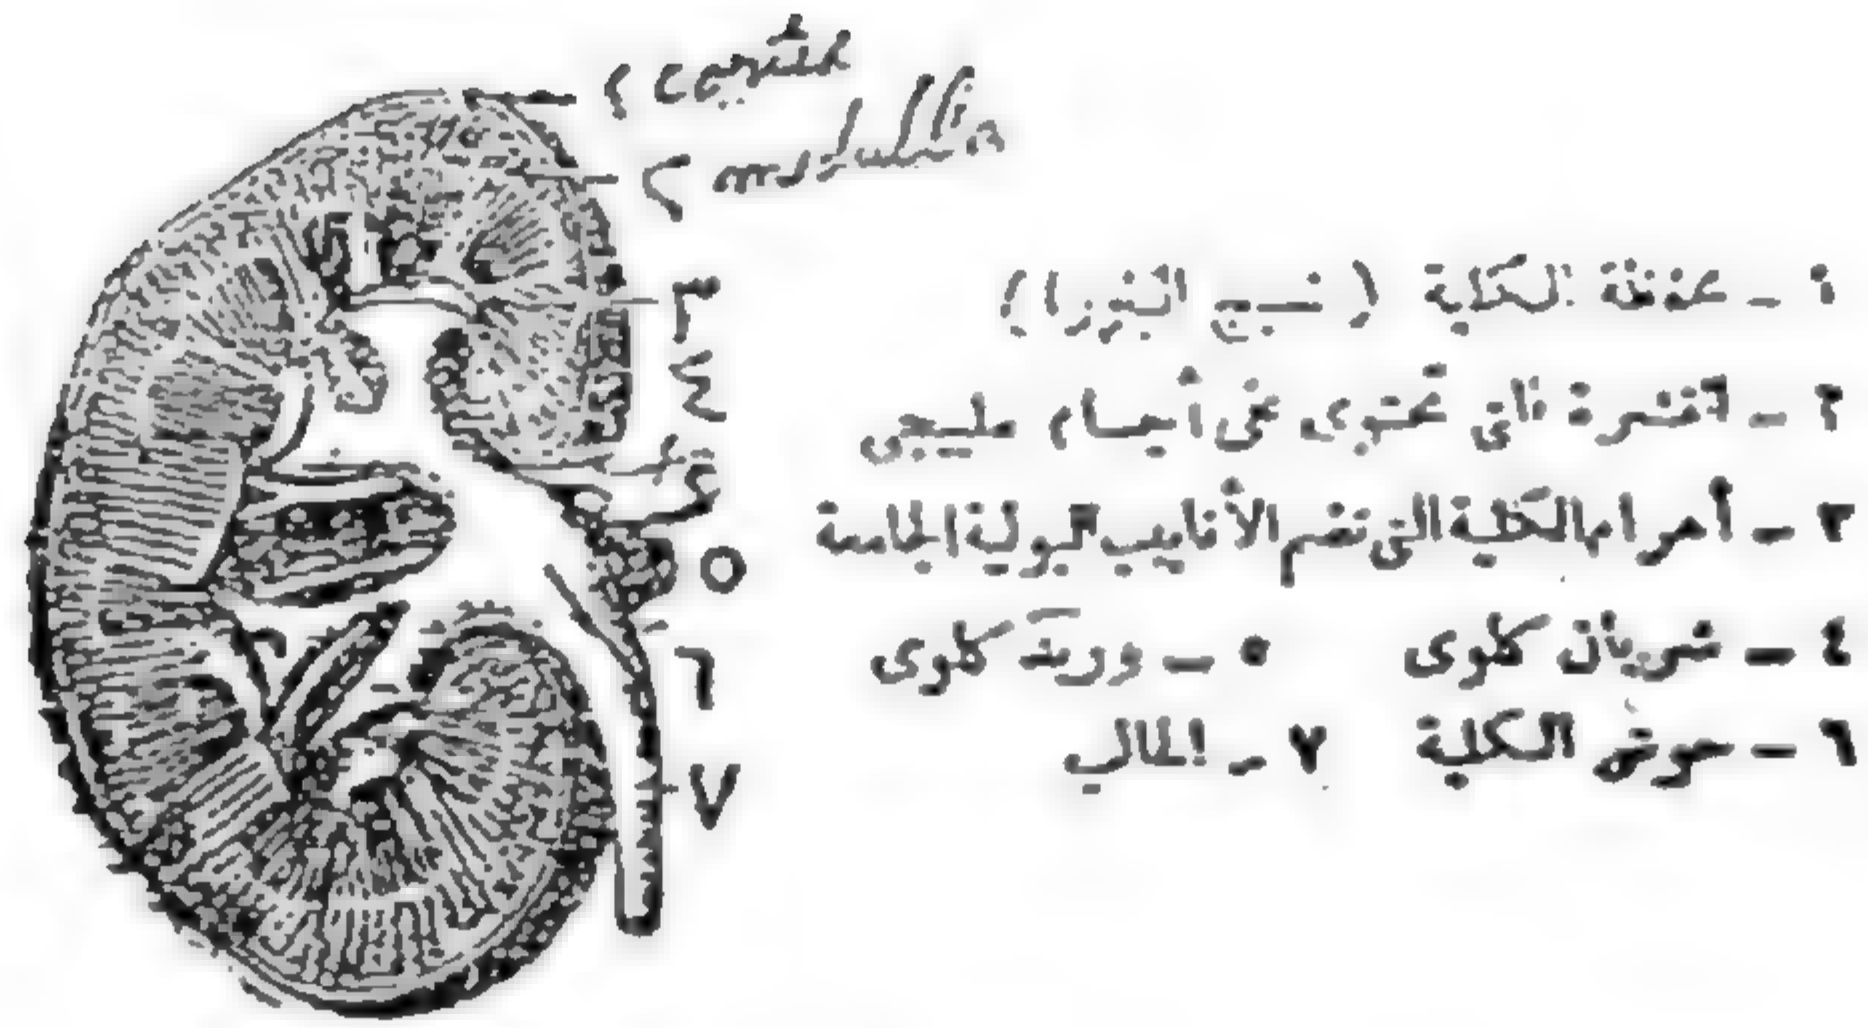 cortex
medulla
٣
٤
٥
٦
٧
١ - محفظة الكلية (نسيج
٢ - القشرة التى تحتوى على أجسام ملبيجى
٣ - أهرام الكلية التى تضم الأنابيب البولية الجامعة
٤ - شريان كلوى ٥ - وريد كلوى
٦ - حوض الكلية ٧ - الحالب